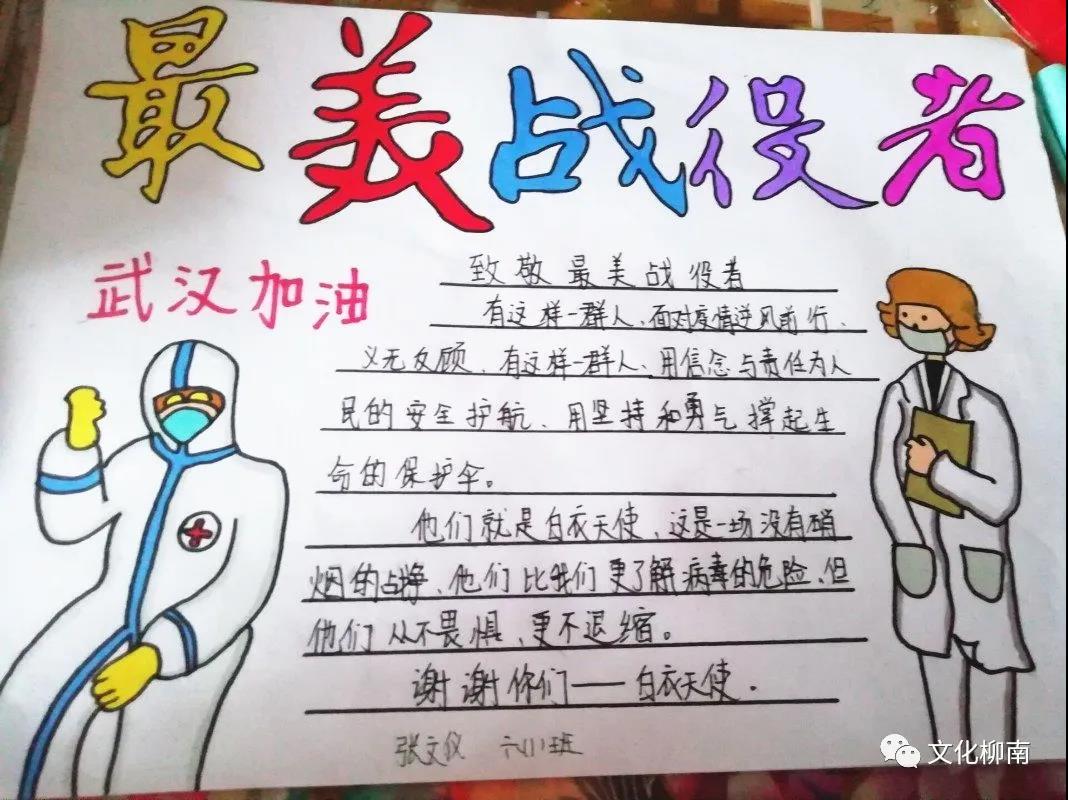 最美战役者
武汉加油
致敬最美战役者
有这样一群人、面对疫情逆风前行、
义无反顾、有这样一群人、用信念与责任为人
民的安全护航、用坚持和勇气撑起生
命的保护伞。
他们就是白衣天使、这是一场没有硝
烟的战争、他们比我们更了解病毒的危险、但
他们从不畏惧、更不退缩。
谢谢你们——白衣天使.
张文仪 六川班
文化柳南